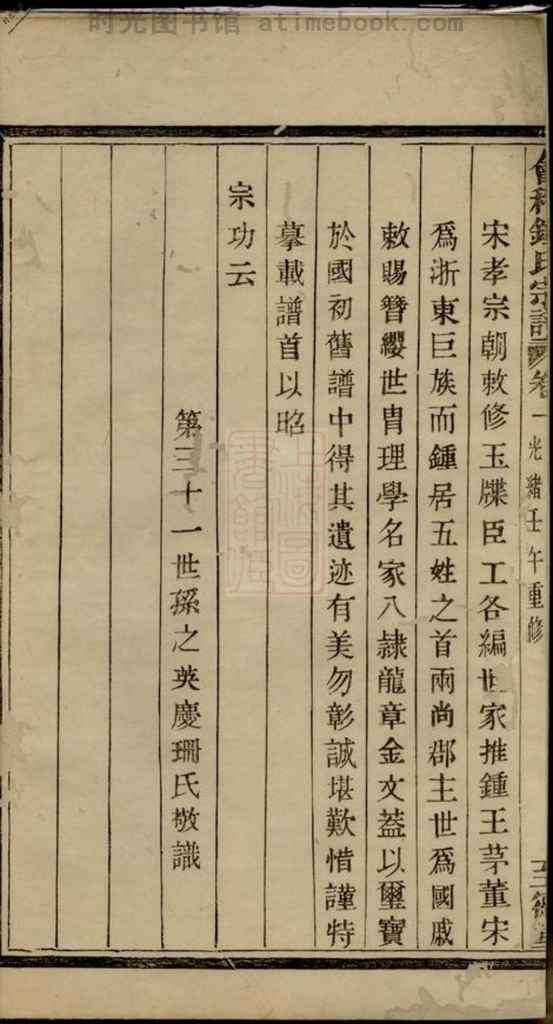 时光图书馆 atimebook.com
會稽鍾氏宗譜 卷一 光緒壬午重修
宋孝宗朝敕修玉牒臣工各編世家推鍾王茅董宋
爲浙東巨族而鍾居五姓之首兩尚郡主世爲國戚
敕賜簪纓世胄理學名家八隷龍章金文葢以璽寶
於國初舊譜中得其遺迹有美勿彰誠堪歎惜謹特
摹載譜首以昭
宗功云
第三十一世孫之英慶珊氏敬識